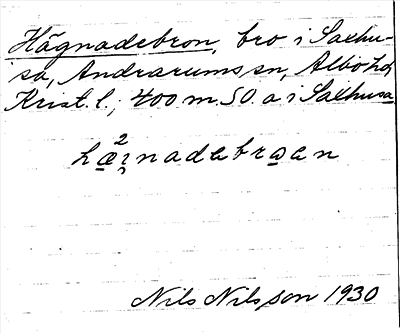 Hägnadebron, bro i Saxhu-
sa, Andrarums sn, Albo hd,
Krist. l.; 400 m. SO. a i Saxhusa
²
hæi̯nadebroen
Nils Nilsson 1930